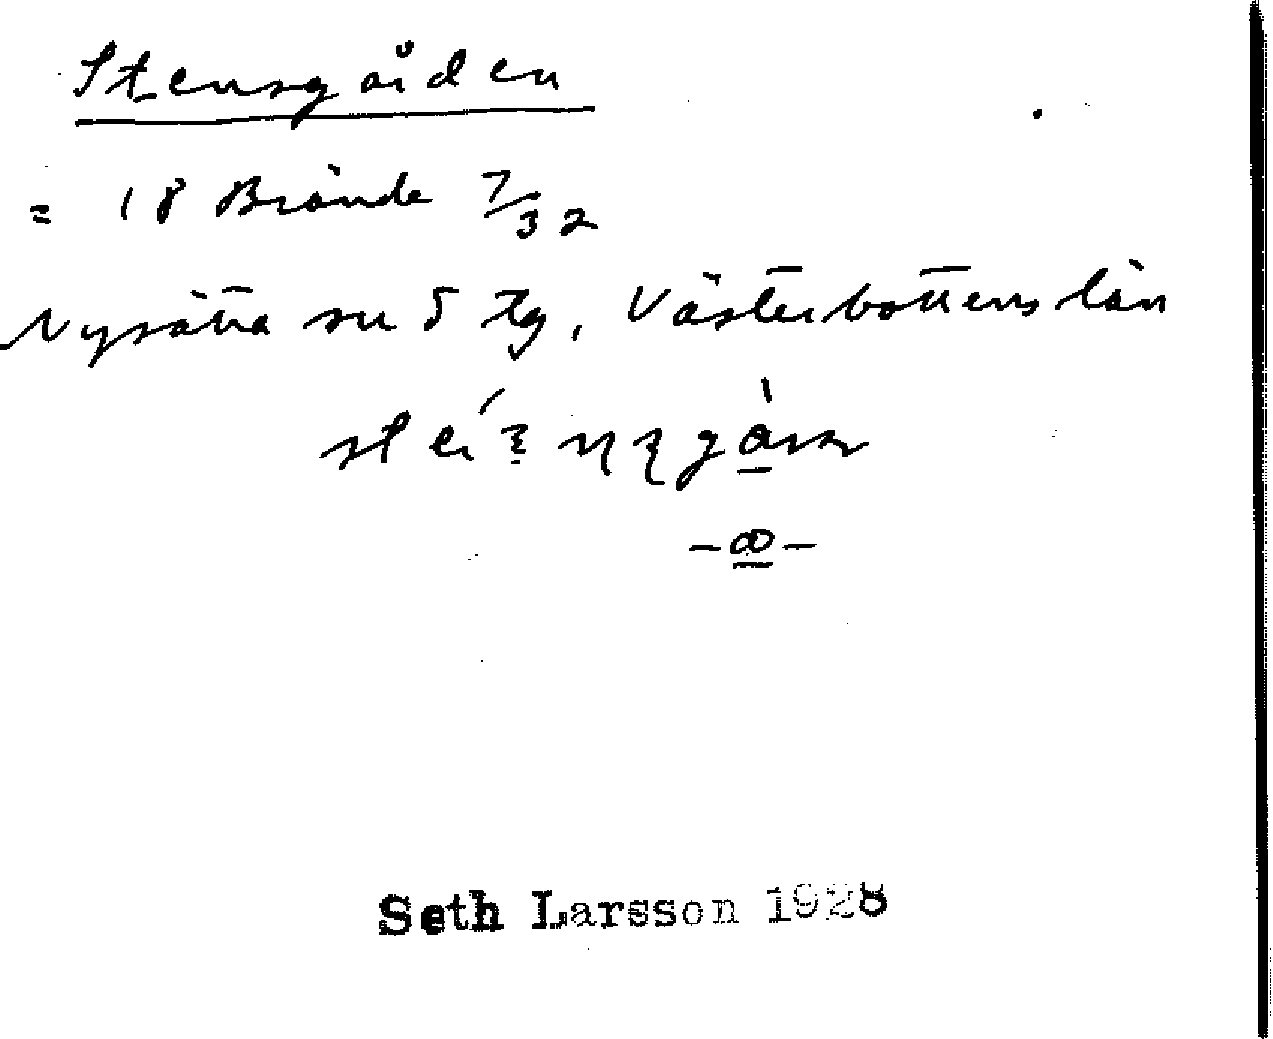 Stensgården
= 18 Brände 7/32
Nysätra sn 5 tg, Västerbottens län
Seth Larsson 1928